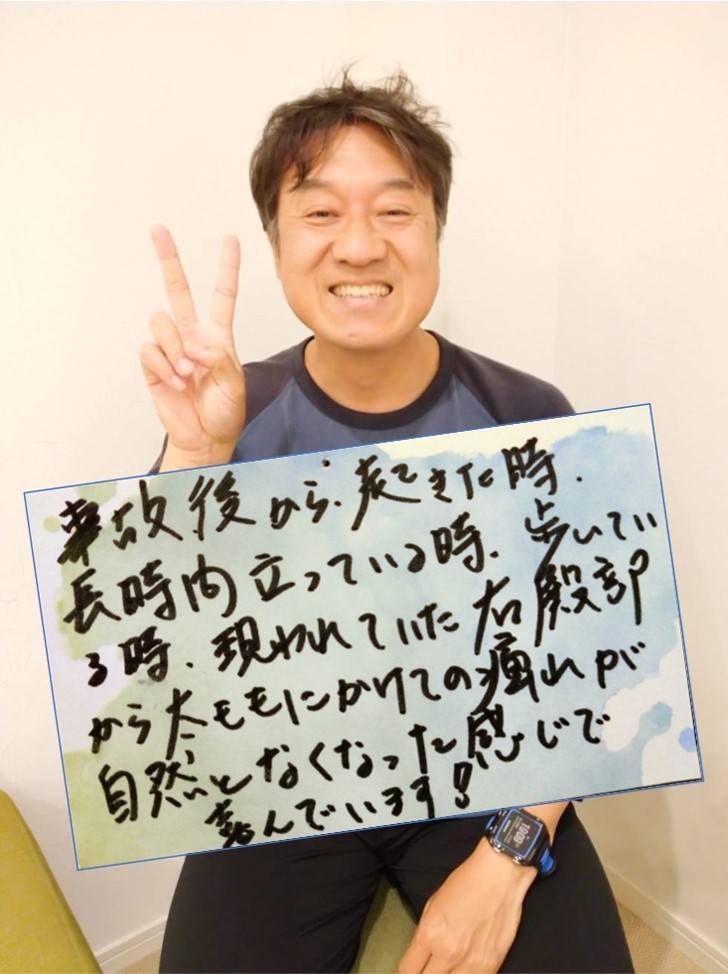 事故後から、起きた時、
長時内立っている時、歩いてい
る時、現われていた右殿部
から太ももにかけての痛みが
自然となくなった感じで
喜んでいます!